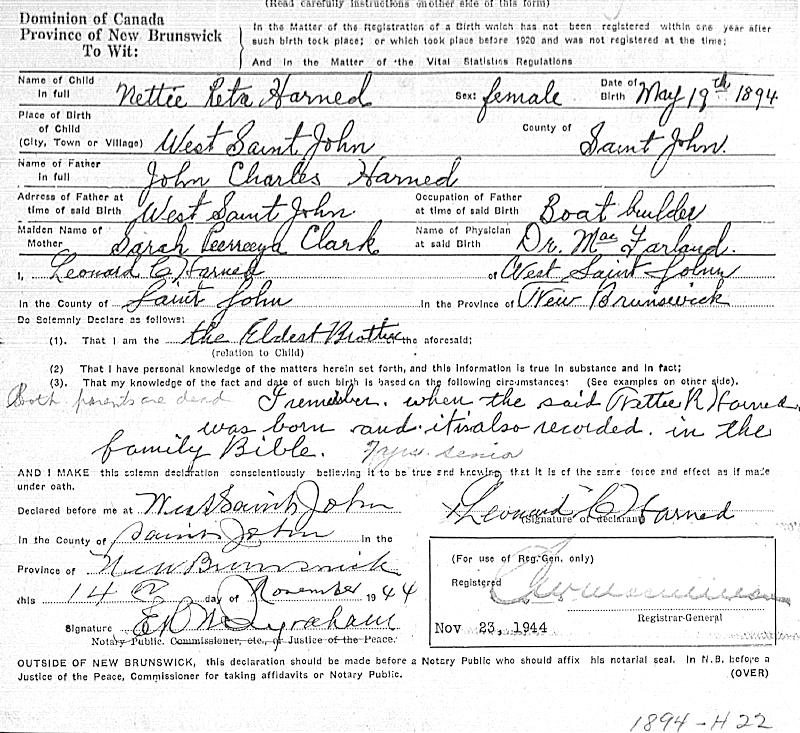 (Read carefully instructions on other side of this form)
Dominion of Canada
Province of New Brunswick
To Wit:
In the Matter of the Registration of a Birth which has not been registered within one year after
such birth took place; or which took place before 1920 and was not registered at the time;
And in the Matter of the Vital Statistics Regulations
Name of Child in full Nettie Reta Harned Sex: female Date of Birth May 19th 1894
Place of Birth of Child (City, Town or Village) West Saint John County of Saint John.
Name of Father in full John Charles Harned
Adrress of Father at time of said Birth West Saint John Occupation of Father at time of said Birth Boat builder
Maiden Name of Mother Sarah Clark Name of Physician at said Birth Dr. Mac Farland.
I, Leonard C Harned of West Saint John
In the County of Saint John In the Province of New Brunswick
Do Solemnly Declare as follows:
(1). That I am the the Eldest Brother the aforesaid;
(relation to Child)
(2) That I have personal knowledge of the matters herein set forth, and this information is true in substance and in fact;
(3). That my knowledge of the fact and date of such birth is based on the following circumstances: (See examples on other side).
Both parents are dead I remember. when the said Nettie R Harned
was born and it is also recorded. in the
family Bible. 7 yrs. senior
AND I MAKE this solemn declaration conscientiously believing it to be true and knowing that it is of the same force and effect as if made
under oath.
Declared before me at West Saint John
Leonard C Harned
(Signature of declarant)
In the County of Saint John in the
Province of New Brunswick
this 14 day of November 1944
Signature
Notary Public, Commissioner, etc., or Justice of the Peace.
(For use of Reg. Gen. only)
Registered
Registrar-General
Nov 23, 1944
OUTSIDE OF NEW BRUNSWICK, this declaration should be made before a Notary Public who should affix his notarial seal. In N.B. before a
Justice of the Peace, Commissioner for taking affidavits or Notary Public. (OVER)
1894-H22